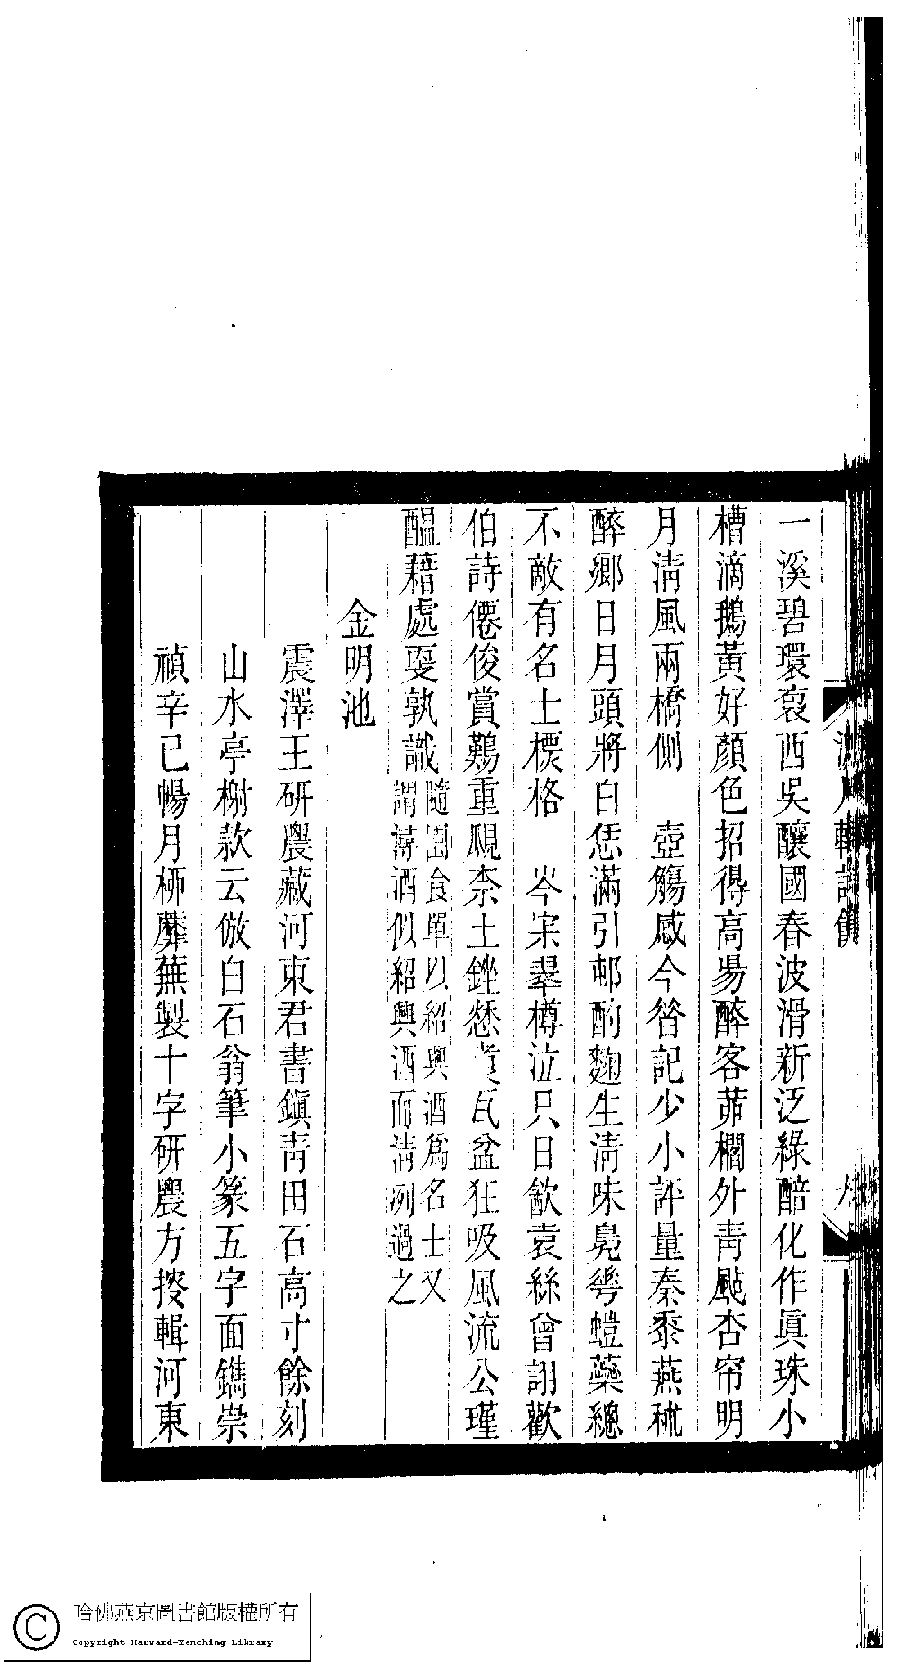 一溪碧環裒西吳釀國春波滑新泛綠醅化作眞珠小
槽滴鵝黃好顏色招得高昜醉客茆欄外靑颭杏帘明
月淸風兩橋側　壺觴感今昝記少小評量秦黍燕秫
醉鄉日月頭將白恁滿引邨酌麴生淸味鳧𠌶螘藥總
不敵有名士標格　岑牢翠樽泣只日歙袁絲曾詡歡
伯詩僊俊賞鷬重覞柰土銼瓦盆狂吸風流公瑾
醞藉處耍孰識
隨園食單以紹興酒爲名士又
謂潯酒似紹興酒而淸冽過之
金明池
震澤王研農藏河東君書鎭靑田石高寸餘刻
山水亭榭款云倣白石翁筆小篆五字面鐫崇
禎辛巳暢月柳蘼蕪製十字研農方㨂輯河東
哈佛燕京圖書館版權所有
Copyright Harvard-Yenching Library